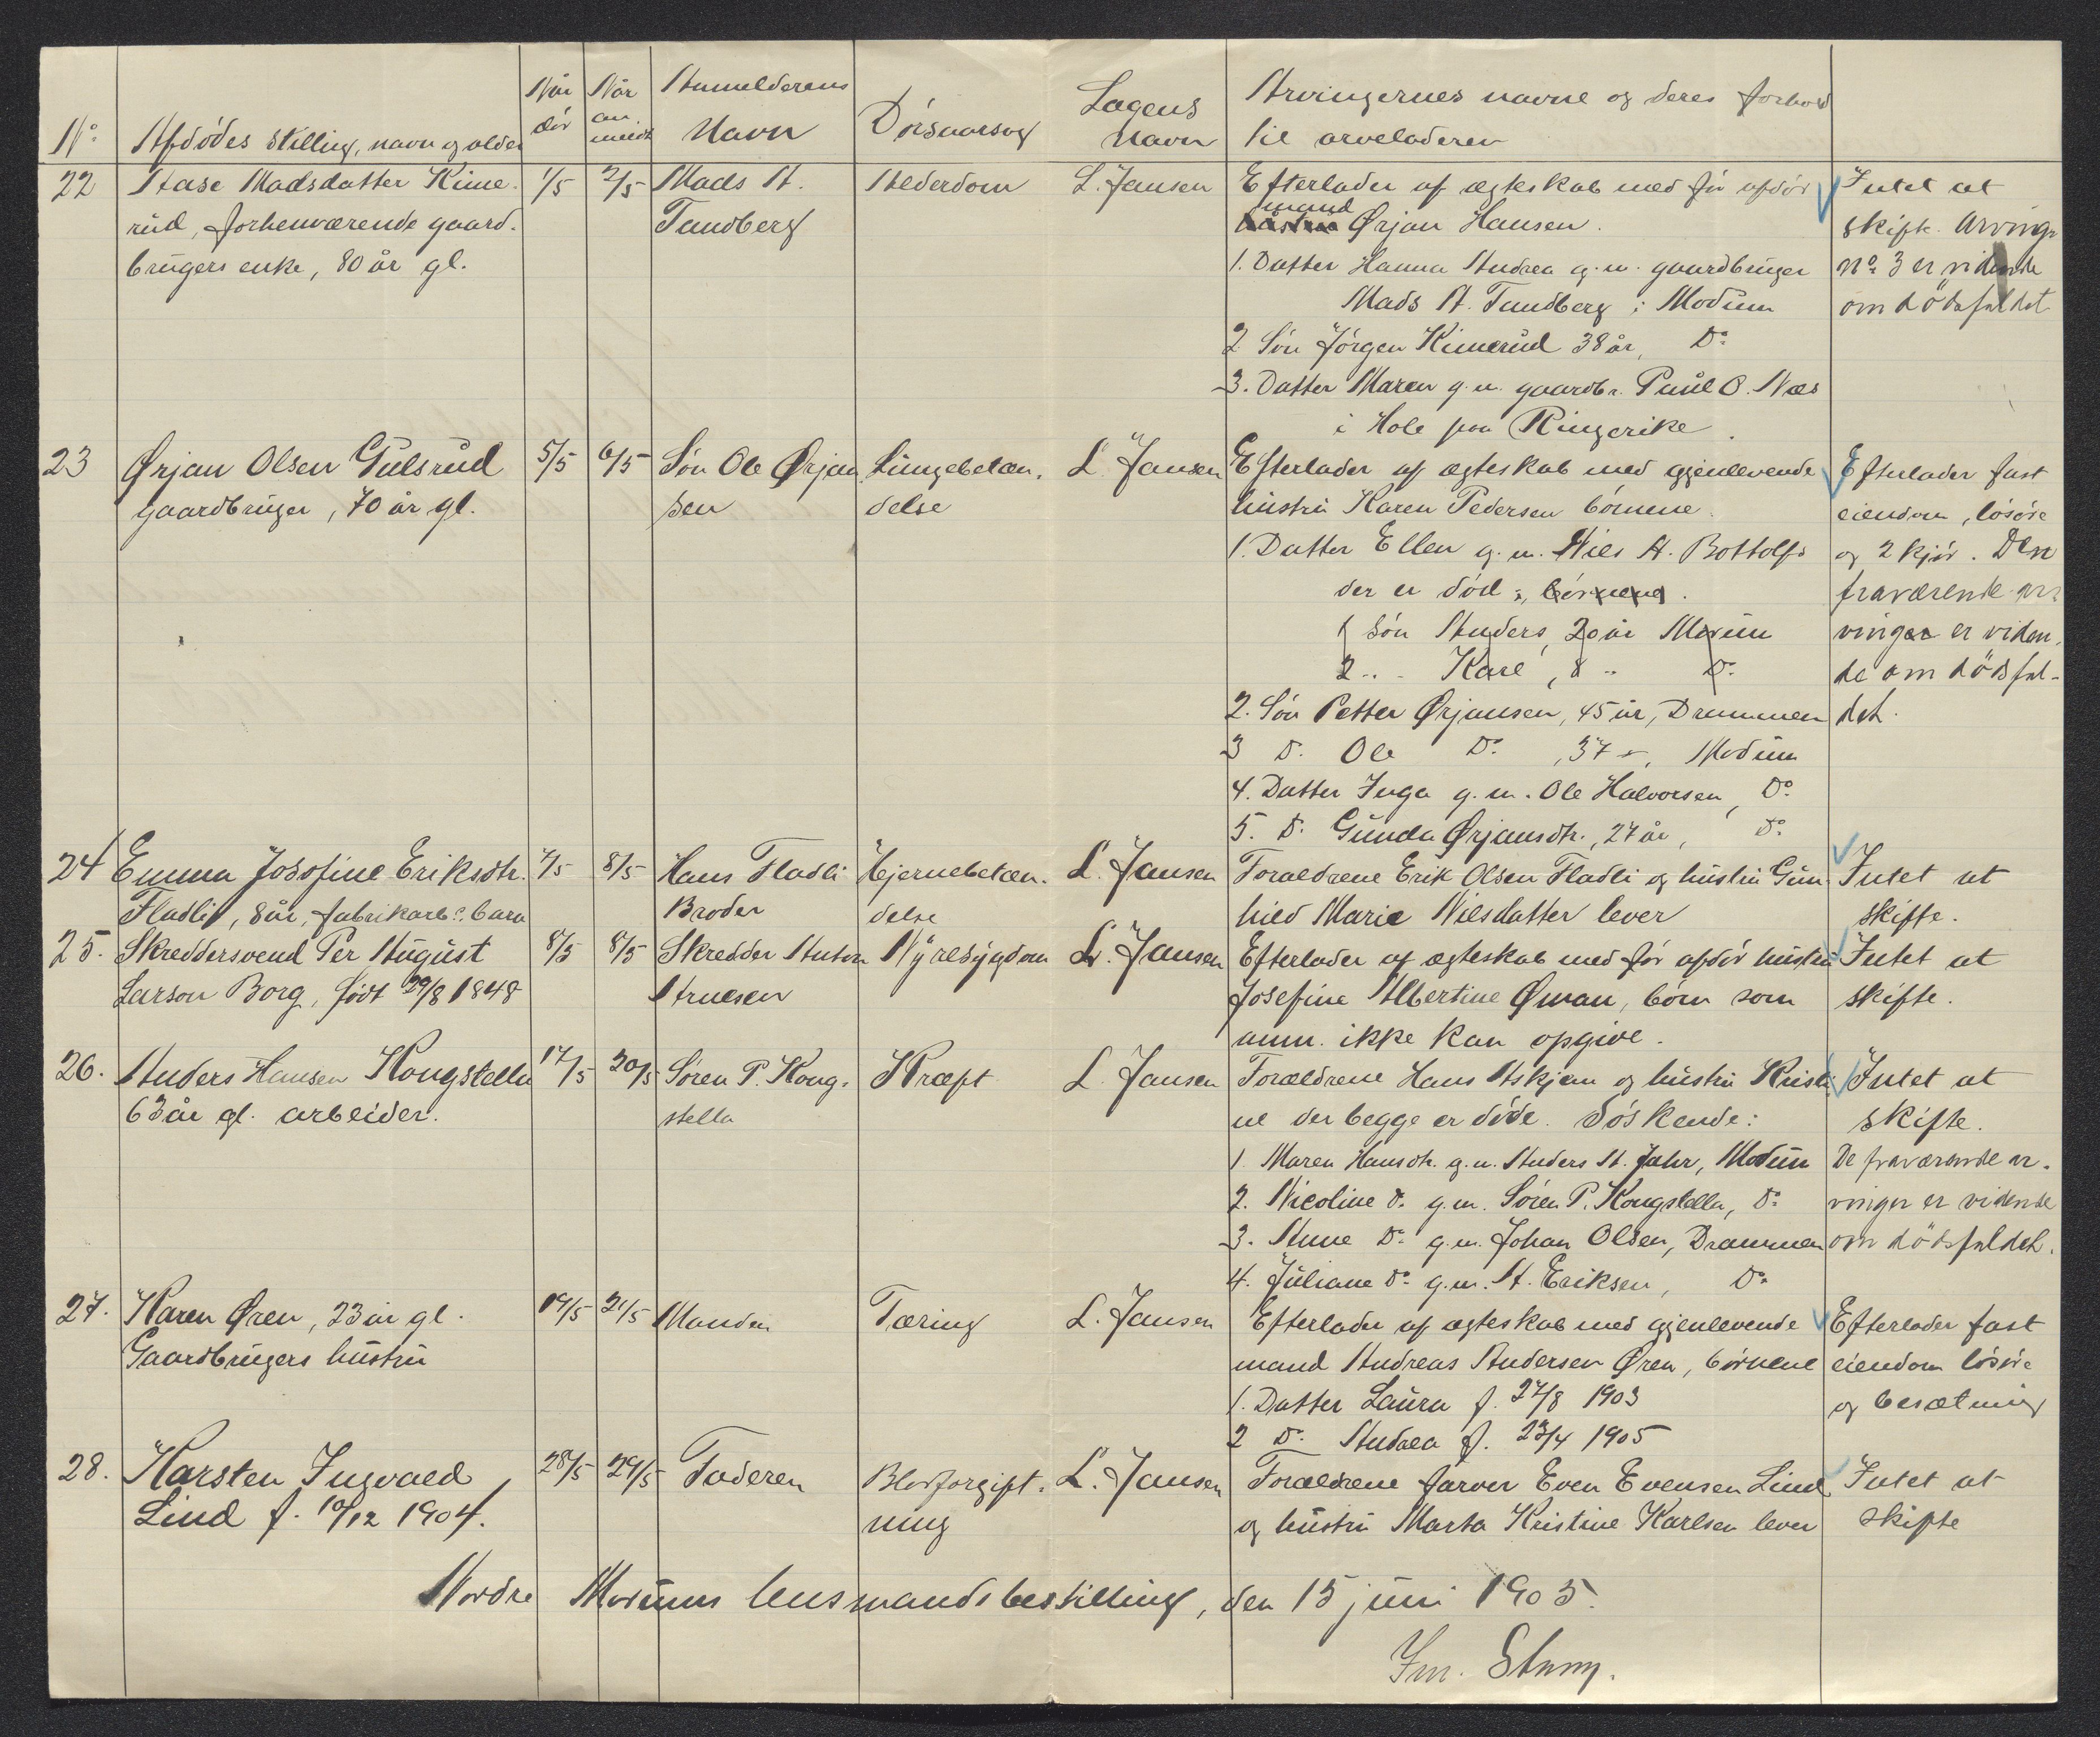 No. Afdødes stilling, navn og alder | Når dør | Når anmeldt | Anmelderens Navn | Dødsaarsag | Lægens Navn | Arvingernes navne og deres forhold til arveladeren
22 Aase Madsdatter Kime- | 1/5 | 2/5 | Mads A. | Alderdom | L. Jansen | Efterlader af ægteskab med før afdød | Intet at
rud, forhenværende gaard- | Tandberg | hustru mand Ørjan Hansen. | skifte. Arving
brugers enke, 80 år gl. | 1. Datter Hanna Andrea g.m. gaardbruger | No. 3 er vidende
Mads A. Tandberg i Modum | om dödsfaldet
2. Søn Jørgen Kimerud 38 år, Do.
3. Datter Maren g.m. gaardbr. Paul O. Næs
i Hole paa Ringerike.
23 Ørjan Olsen Gulsrud | 5/5 | 6/5 | Søn Ole Ørjan | Lungebetæn- | L. Jansen | Efterlader af ægteskab med gjenlevende | Efterlader fast
gaardbruger, 70 år gl. | sen | delse | hustru Karen Pedersen børnene | eiendom, løsøre
1. Datter Ellen g.m. Niels A. Bottolfs | og 2 kjør. Den
der er død, børnene. | fraværende ar-
1 Søn Anders, 20 år Modum | vinger er viden-
2 " Karl, 8 " Do. | de om dödsfal-
2. Søn Petter Ørjansen, 45 år, Drammen | det.
3 Do. Ole Do. , 37 ", Modum
4. Datter Inga g.m. Ole Halvorsen, Do.
5. Do. Gunda Ørjansdtr., 27 år, Do.
24 Emma Josefine Eriksdtr. | 7/5 | 8/5 | Hans Fladli | Hjernebetæn- | L. Jansen | Foraeldrene Erik Olsen Fladli og hustru Gun- | Intet at
Fladli, 8 år, fabrikarb. barn | Broder | delse | hild Marie Nilsdatter lever | skifte.
25. Skreddersvend Per August | 8/5 | 8/5 | Skredder Anton | Nyresygdom | L. Jansen | Efterlader af ægteskab med før afdød hustru | Intet at
Larson Borg, født 29/8 1848 | Arnesen | Josefine Albertine Öman, børn som | skifte.
anm. ikke kan opgive.
26. Anders Hansen Kongstella | 17/5 | 20/5 | Søren P. Kong- | Kræft | L. Jansen | Forældrene Hans Askjem og hustru Kristi- | Intet at
63 år gl. arbeider. | stella | ne der begge er døde. Søskende: | skifte.
1 Maren Hansdtr. g.m. Anders A. Jahr, Modum | De fraværende ar-
2. Nicoline Do. g.m. Søren P. Kongstella, Do. | vinger er vidende
3. Anne Do. g.m. Johan Olsen, Drammen | om dödsfaldet.
4. Juliane Do. g.m. A. Eriksen, Do.
27. Karen Øren, 23 år gl. | 19/5 | 21/5 | Manden | Tæring | L. Jansen | Efterlader af ægteskab med gjenlevende | Efterlader fast
Gaardbrugers hustru | mand Andreas Andersen Øren, børnene | eiendom løsøre
1. Datter Laura f. 27/8 1903 | og besætning
2 Do. Andrea f. 23/4 1905
28. Karsten Ingvald | 28/5 | 29/5 | Faderen | Blodforgift- | L. Jansen | Forældrene farver Even Evensen Lind | Intet at
Lind f. 10/12 1904. | ning | og hustru Marta Kristine Karlsen lever | skifte
Nordre Modums lensmandsbestilling, den 15 juni 1905.